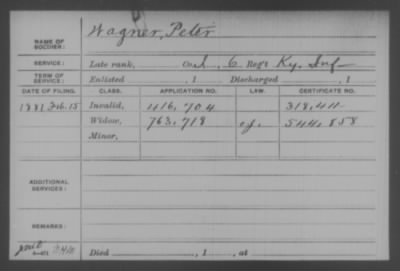 Wagner, Peter
NAME OF SOLDIER:
SERVICE: Late rank, 6 Reg't Ky. Inf
TERM OF SERVICE: Enlisted , 1 Discharged , 1
DATE OF FILING. CLASS. APPLICATION NO. LAW. CERTIFICATE NO.
1881 Feb. 15 Invalid, 416,704 318,411
Widow, 763,718 544,858
Minor,
ADDITIONAL SERVICES:
REMARKS:
Died , 1 , at